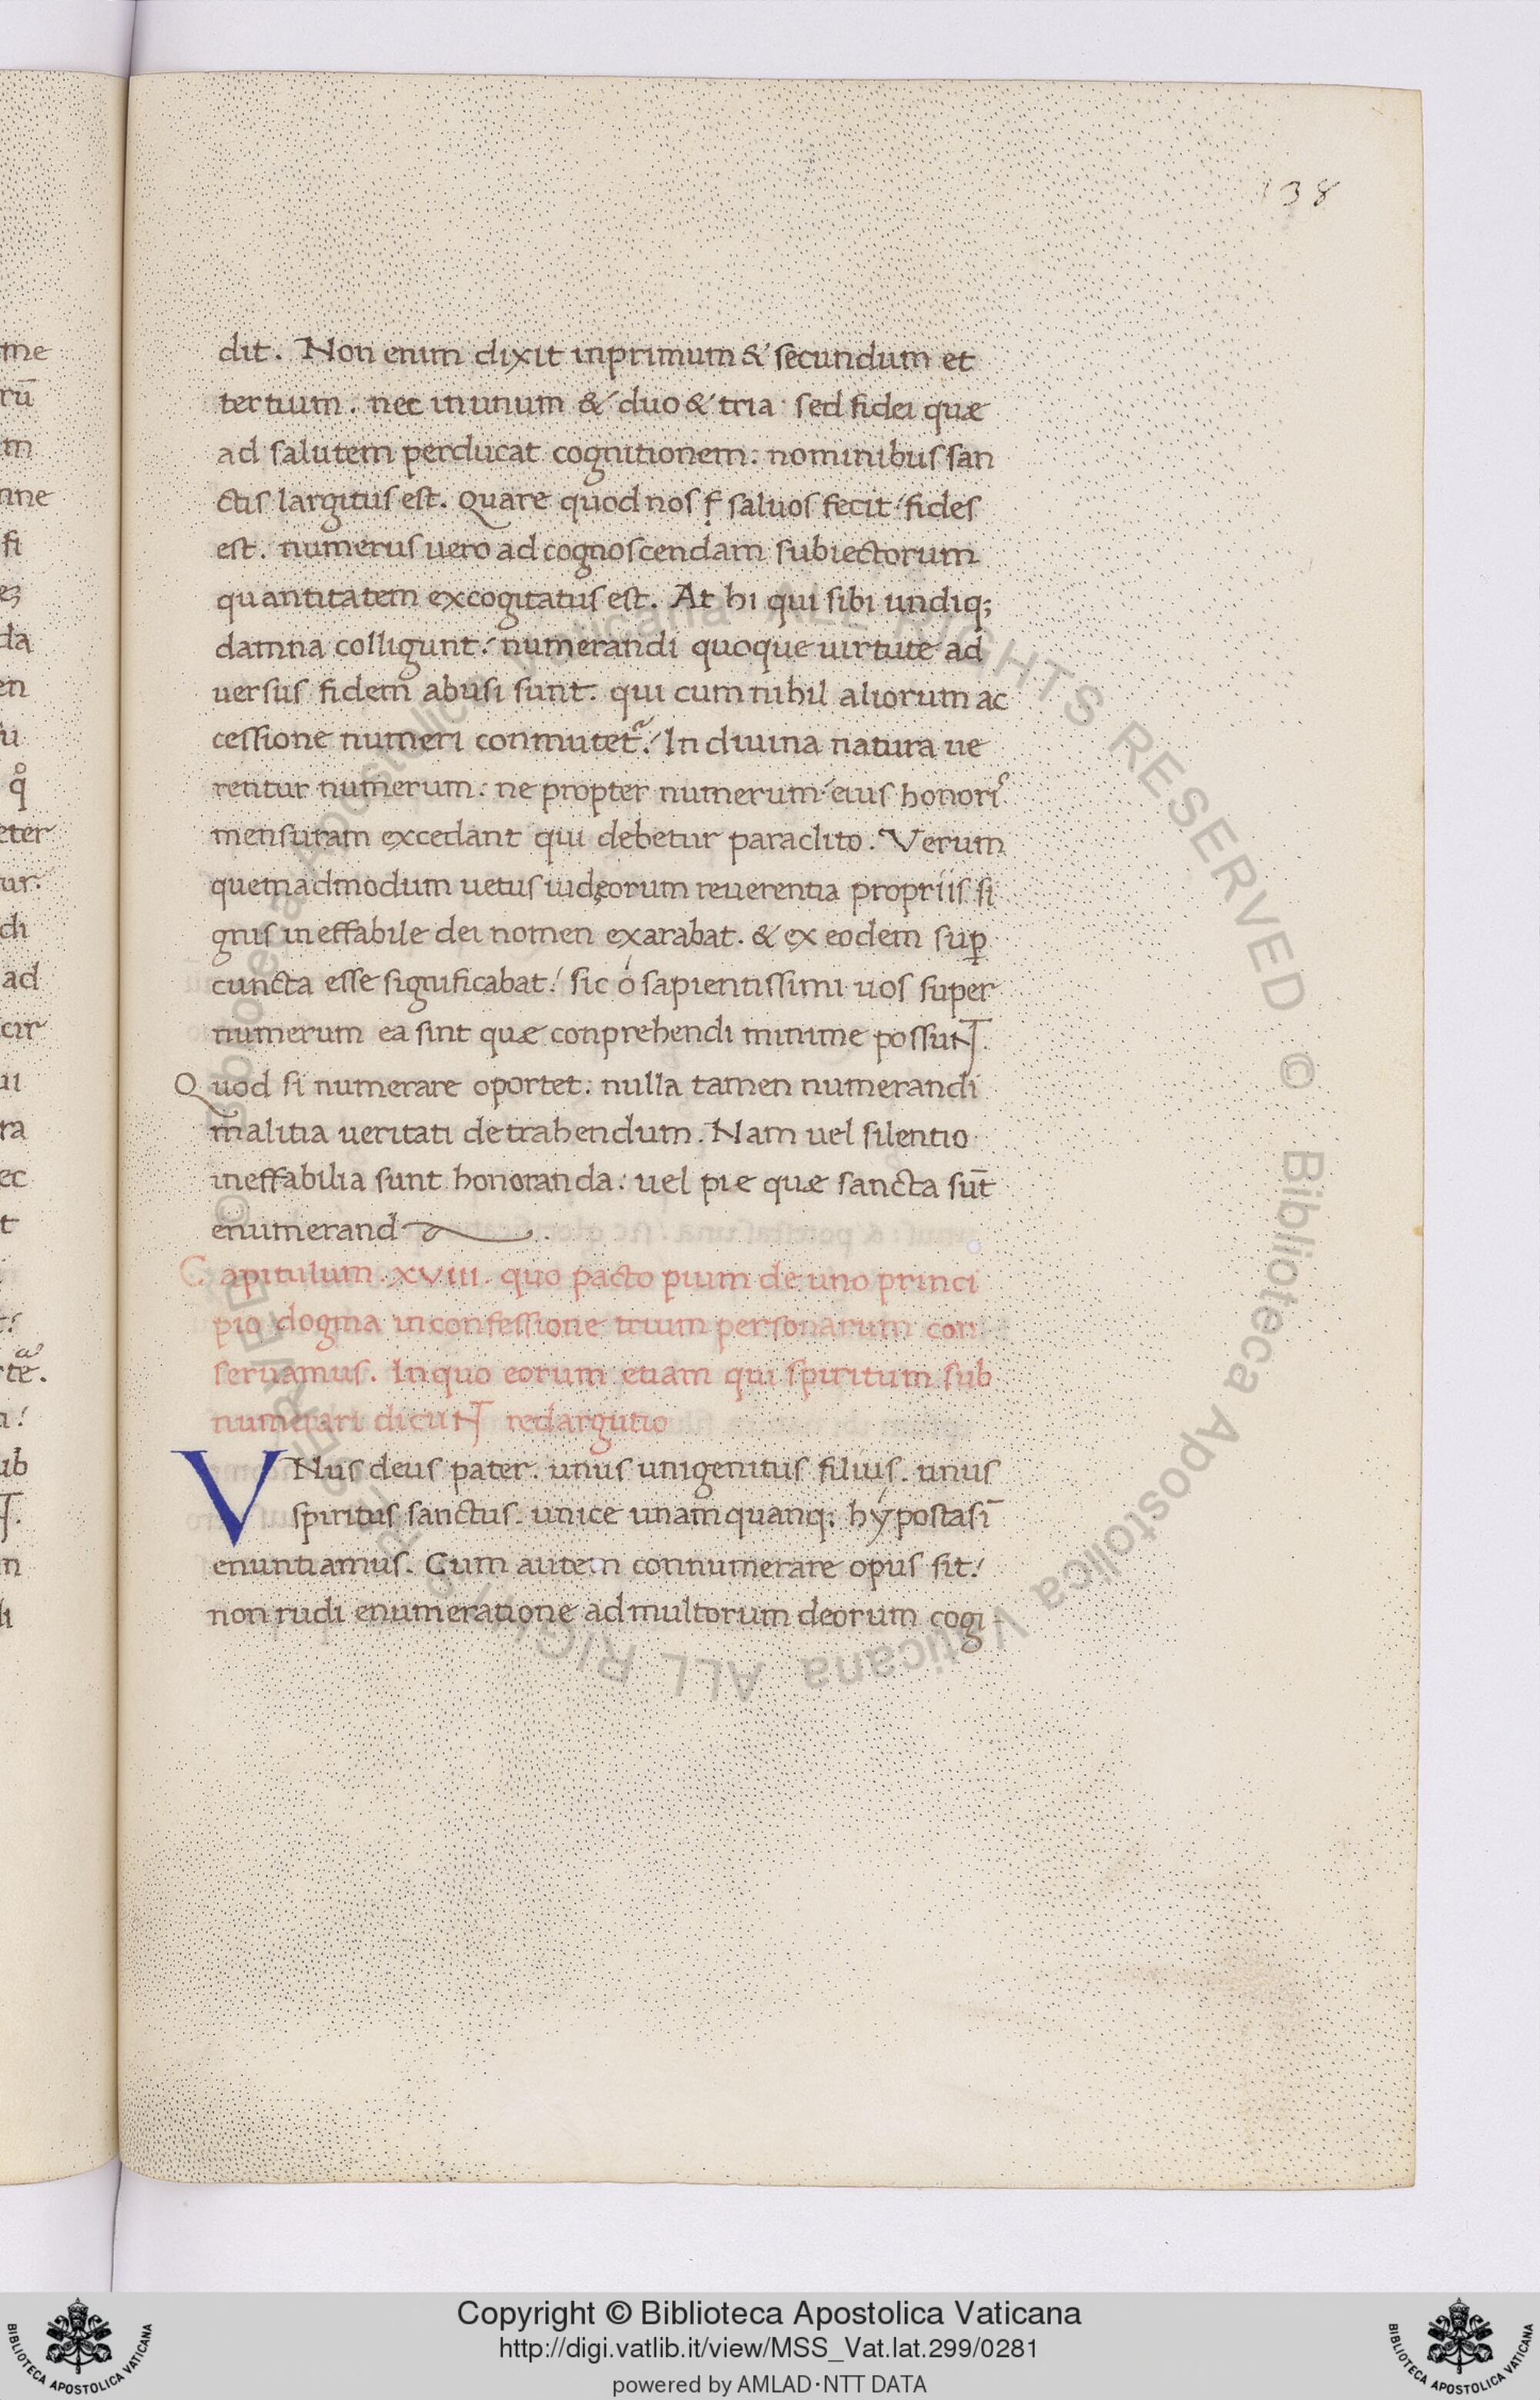 138
dit. Non enim dixit inprimum & secundum et
tertium. nec inunum & duo & tria sed fidei quæ
ad salutem perducat cognitionem: nominibus san
ctis largitus est. Quare quod nos saluos fecit fides
est. numerus uero ad cognoscendam subiectorum
quantitatem excogitatus est. At hi qui sibi undiq;
damna colligunt: numerandi quoque uirtute ad
uersus fidem abusi sunt. qui cum nihil aliorum ac
cessione numeri conmutet᷑: In diuina natura ue
rentur numerum: ne propter numerum eius honoris
mensuram excedant qui debetur paraclito. Verum
quemadmodum uetus iudęorum reuerentia propriis si
gnis ineffabile dei nomen exarabat. & ex eodem suꝑ
cuncta esse significabat: sic ó sapientissimi uos super
numerum ea sint quæ conprehendi minime possuNT.
Quod si numerare oportet: nulla tamen numerandi
malitia ueritati detrahendum. Nam uel silentio
ineffabilia sunt honoranda: uel pie quæ sancta sūt
enumeranda.
Capitulum. XVIII. quo pacto pium de uno princi
pio dogma in confessione trium personarum con
seruamus. In quo eorum etiam qui spiritum sub
numerari dicuNT redargutio
VNus deus pater. unus unigenitus filius. unus
spiritus sanctus. unice unamquanq; hýpostasī
enuntiamus. Cum autem connumerare opus sit:
non rudi enumeratione ad multorum deorum cogi-
me
rū
m
nne
fi
eꝫ
da
en
u
q̊
eter
ur.
di
ad
cir
ui
ra
ec
t
ub
n
li
© Biblioteca Apostolica Vaticana ALL RIGHTS RESERVED © Biblioteca Apostolica Vaticana ALL RIGHTS RESERVED
BIBLIOTECA APOSTOLICA VATICANA
Copyright © Biblioteca Apostolica Vaticana
http://digi.vatlib.it/view/MSS_Vat.lat.299/0281
powered by AMLAD·NTT DATA
BIBLIOTECA APOSTOLICA VATICANA